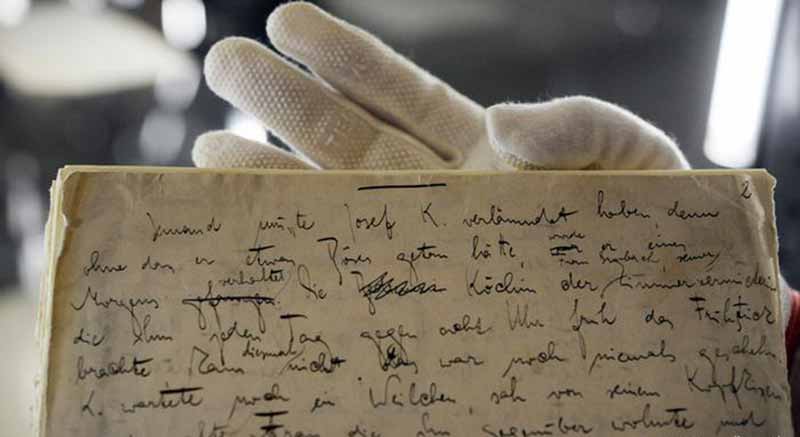 2
Jemand musste Josef K. verläumdet haben, denn
ohne dass er etwas Böses getan hätte, wurde er eines
Frau Grubach seiner
Morgens verhaftet. Die Köchin der Zimmervermieterin
die ihm jeden Tag gegen acht Uhr früh das Frühstück
brachte kam diesmal nicht. Das war noch niemals geschehn.
K. wartete noch ein Weilchen, sah von seinem Kopfkissen
alte Frau die ihm gegenüber wohnte und